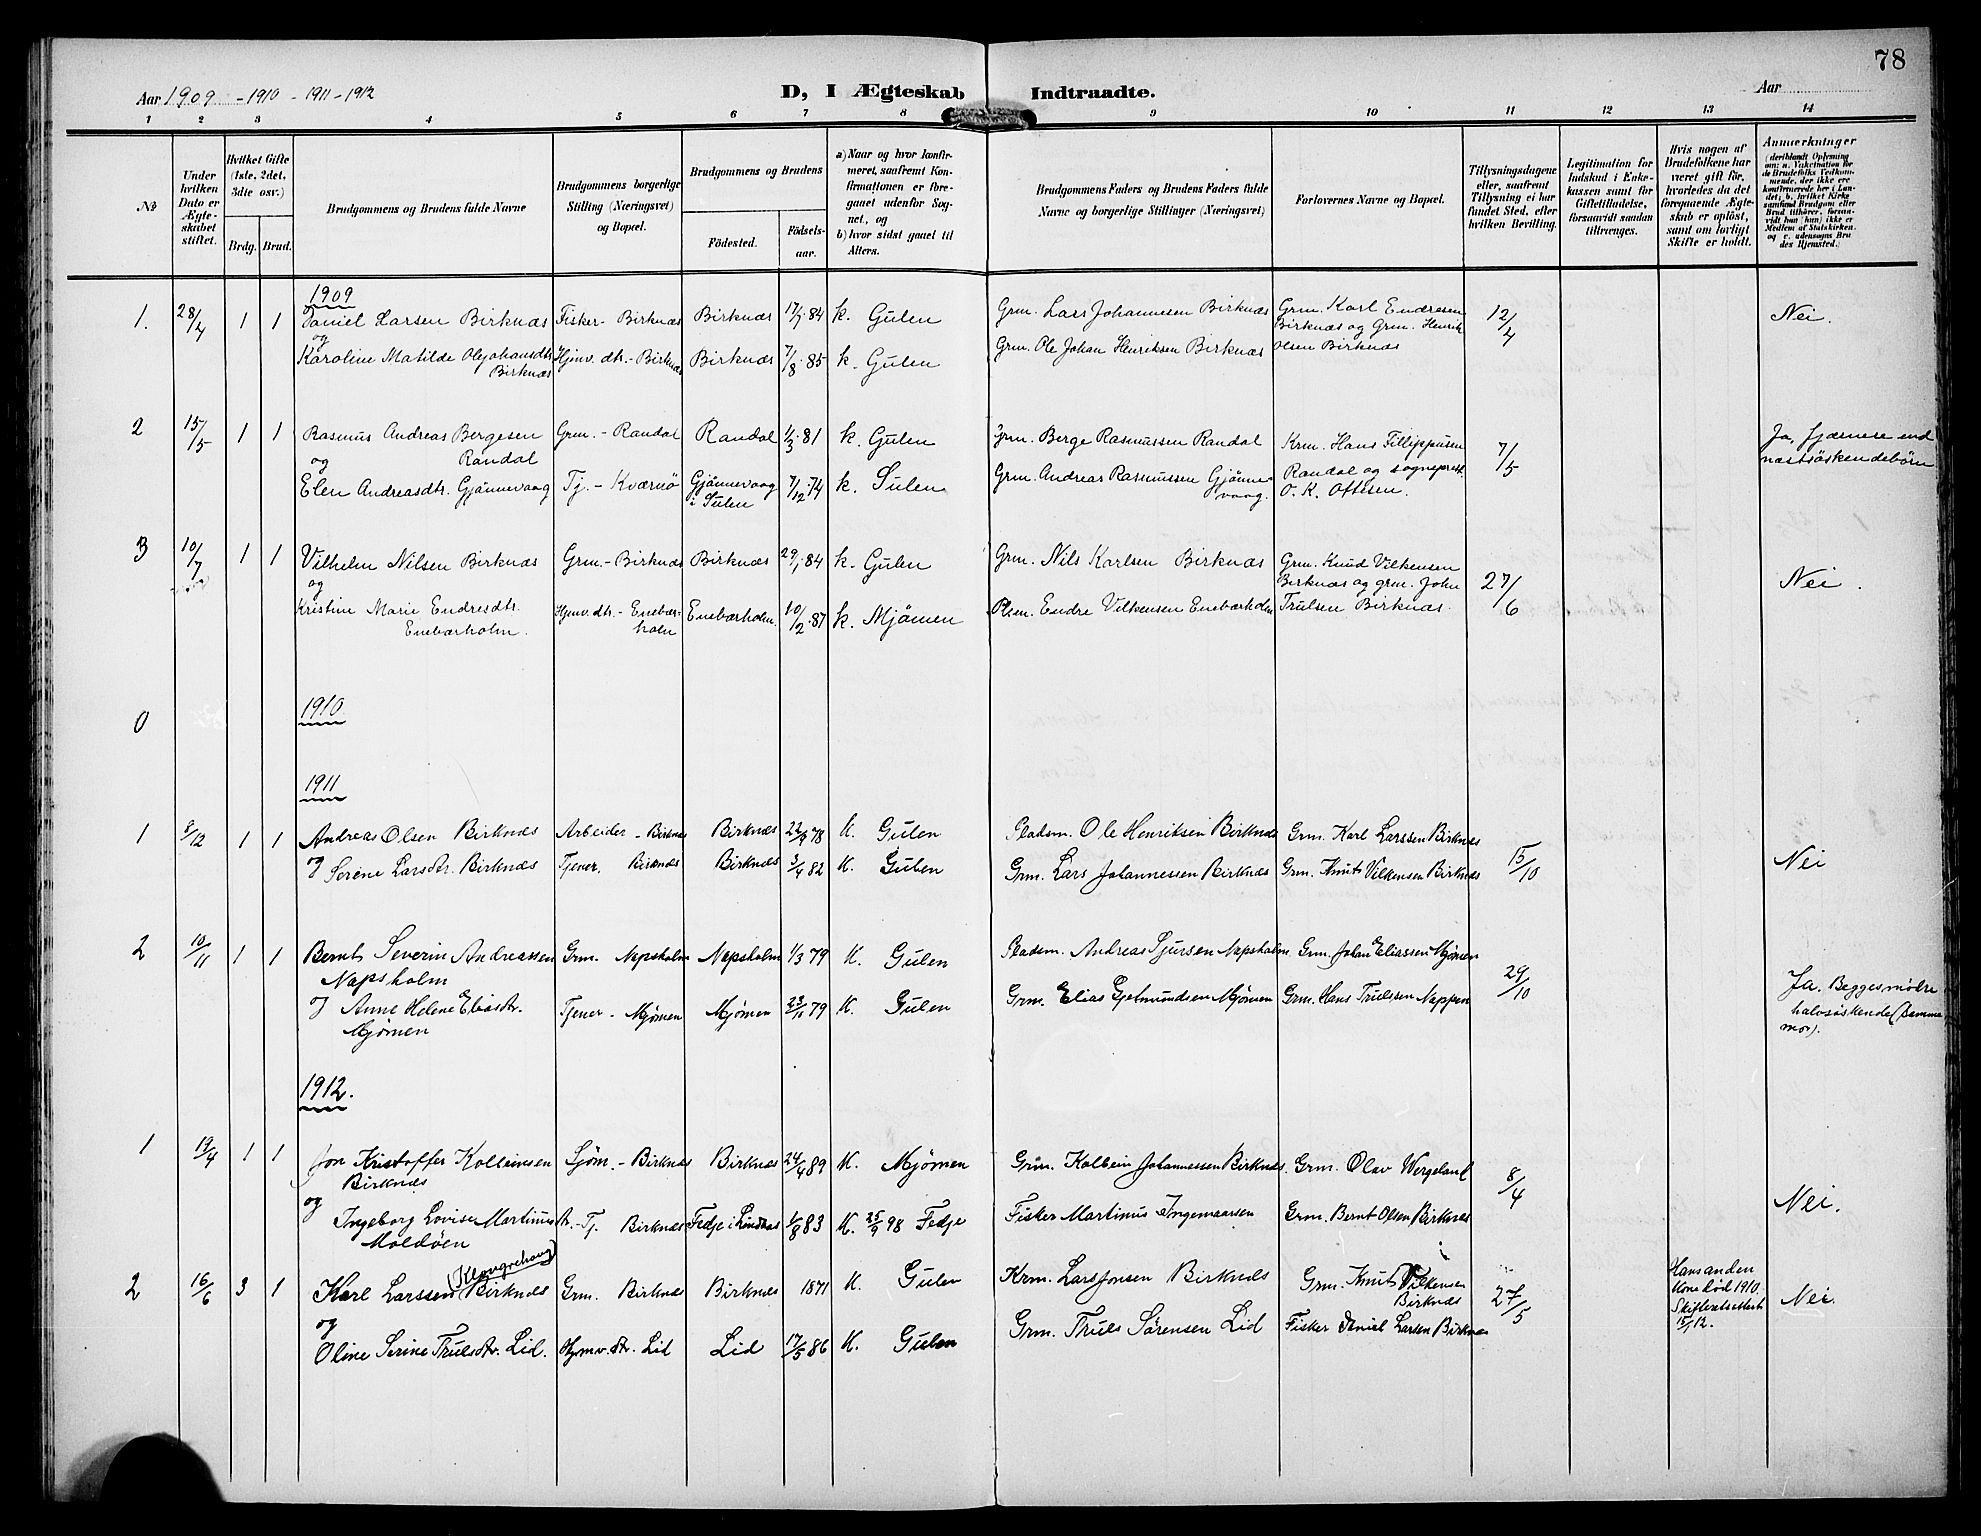 78
Aar 1909 - 1910 - 1911 - 1912
D, I Ægteskab Indtraadte.
Aar
1 2 3 4 5 6 7 8 9 10 11 12 13 14
№
Under hvilken Dato er Ægteskabet stiftet.
Hvilket Gifte (1ste, 2det, 3die osv.)
Brdg. Brud.
Brudgommens og Brudens fulde Navne
Brudgommens borgerlige Stilling (Næringsvei) og Bopæl.
Brudgommens og Brudens
Födested. Födselsaar.
a) Naar og hvor konfirmeret, saafremt Konfirmationen er foregaaet udenfor Sognet, og
b) hvor sidst gaaet til Alters.
Brudgommens Faders og Brudens Faders fulde Navne og borgerlige Stillinger (Næringsvei)
Forlovernes Navne og Bopæl.
Tillysningsdagene eller, saafremt Tillysning ei har fundet Sted, efter hvilken Bevilling.
Legitimation for Indskud i Enkekassen samt for Giftetilladelse, forsaavidt saadan tiltrænges.
Hvis nogen af Brudefolkene har været gift før, hvorledes da det foregaaende Ægteskab er opløst, samt om lovligt Skifte er holdt.
Anmærkninger
(deriblandt Oplysning om: a. Vakcination for de Brudefolks Vedkommende, der ikke ere konfirmerede her i Landet; b. hvilket Kirkesamfund Brudgom eller Brud tilhører, forsavidt han (hun) ikke er Medlem af Statskirken. og c. udensogns Brudes Hjemsted.
1909
1. 28/4 1 1 Daniel Larsen Birknæs Fisker - Birknæs Birknæs 17/7 84 k. Gulen Grm. Lars Johannesen Birknæs Grm. Karl Endresen Birknæs og Grm. Henrik Olsen Birknæs 12/4 Nei.
og
Karoline Matilde Olejohansdtr. Birknæs Hjmv. dtr. - Birknæs Birknæs 7/8 85 k. Gulen Grm. Ole Johan Henriksen Birknæs
2 15/5 1 1 Rasmus Andreas Bergesen Randal Grm. - Randal Randal 1/3 81 k. Gulen Grm. Berge Rasmussen Randal Krm. Hans Fillippusen Randal og sogneprest O. K. Ottesen. 7/5 Ja, fjærnere end næstsöskendebörn
og
Elen Andreasdtr. Gjönnevaag Tj. - Kværnö Gjönnevaag i Sulen 7/12 74 k. Sulen Grm. Andreas Rasmussen Gjönnevaag.
3 10/7 1 1 Vilhelm Nilsen Birknæs Grm. - Birknæs Birknæs 29/1 84 k. Gulen Grm. Nils Karlsen Birknæs Grm. Knud Vilkensen Birknæs og grm. John Trulsen Birknæs. 27/6 Nei.
og
Kristine Marie Endresdtr. Enebærholm. Hjmv. dtr. - Enebærholm Enebærholm. 10/2 87 k. Mjömen Plsm. Endre Vilkensen Enebærholm
0 1910
1911
1 8/12 1 1 Andreas Olsen Birknæs Arbeider - Birknæs Birknæs 22/9 78 K. Gulen Pladsm. Ole Henriksen Birknæs Grm. Karl Larssen Birknæs 15/10 Nei
og Serine Larsdtr. Birknæs Tjener. Birknæs Birknæs 3/4 82 K. Gulen Grm. Lars Johannessen Birknæs Grm. Knut Vilkensen Birknæs
2 10/11 1 1 Bernt Severin Andreassen Napsholm Grm. Napsholm Napsholm 1/3 79 K. Gulen Pladsm. Andreas Sjursen Napsholm Grm. Johan Eliassen Mjømen 29/10 Ja. Begges mødre halvsøskende (samme mor).
og Anne Helene Eliasdtr. Mjømen Tjener - Mjømen Mjømen 23/11 79 K. Gulen Grm. Elias Gjelmundsen Mjømen Grm. Hans Trulssen Nappen
1912.
1 19/4 1 1 Jon Kristoffer Kolbeinsen Birknæs Sjöm. - Birknæs Birknæs 24/4 89 K. Mjømen Grm. Kolbein Johannessen Birknæs. Grm. Olav Wergeland 8/4 Nei.
og
Ingeborg Lovise Martinusdtr. Moldøen - Tj. Birknæs Fedje i Lindaas 1/8 83 K. 25/9 98 Fedje Fisker Martinus Ingemaarsen Grm. Bernt Olsen Birknæs
2 16/6 3 1 Karl Larssen (Klongrehaug) Birknæs Grm. Birknæs Birknæs 1871 K. Gulen Krm. Lars Jonsen Birknæs Grm. Knut Vilkensen Birknæs 27/5 Hans anden Kone død 1910. Skifteretsattest 15/1 12. Nei.
og
Oline Serine Trulsdtr. Lid. Hjmv. dtr. Lid Lid 17/5 86 K. Gulen Grm. Truls Sørensen Lid Fisker Daniel Larsen Birknæs